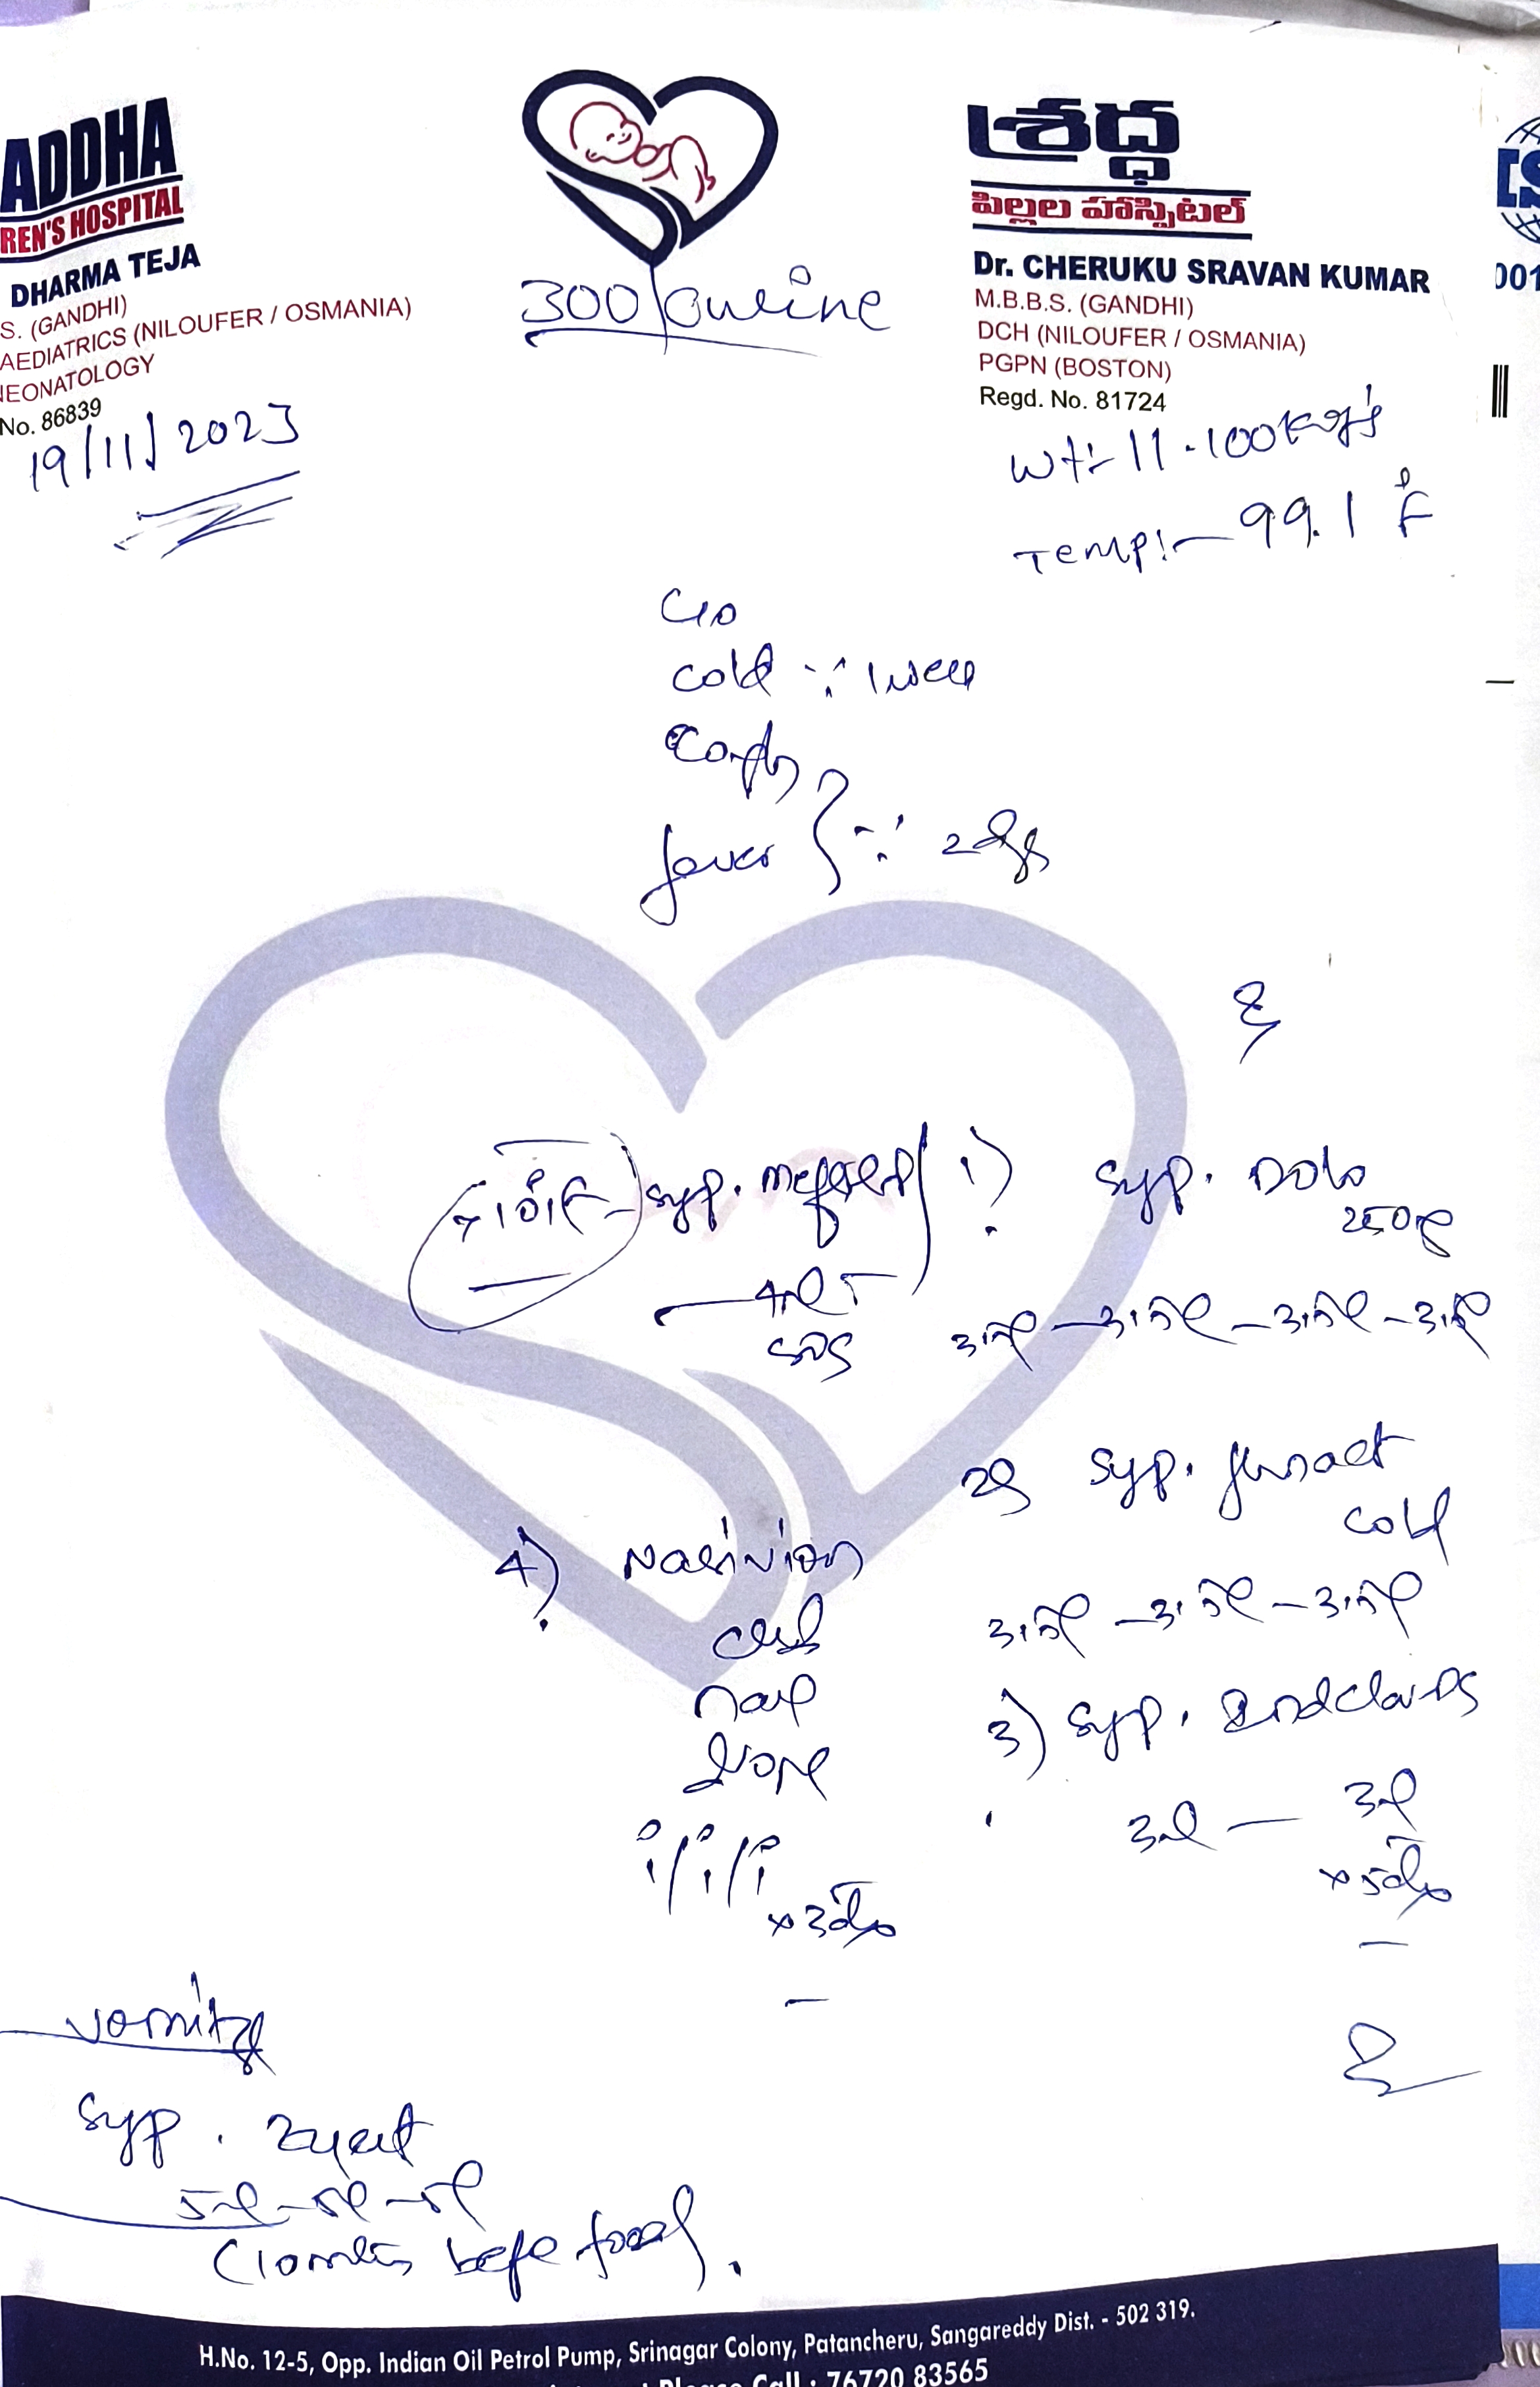 ADDHA
REN'S HOSPITAL
DHARMA TEJA
S. (GANDHI)
AEDIATRICS (NILOUFER / OSMANIA)
NEONATOLOGY
No. 86839
19/11/2023
300/online
శ్రద్ధ
పిల్లల హాస్పిటల్
Dr. CHERUKU SRAVAN KUMAR
M.B.B.S. (GANDHI)
DCH (NILOUFER / OSMANIA)
PGPN (BOSTON)
Regd. No. 81724
001
Wt:- 11.100Kg's
Temp:- 99.1 °F
C/o
cold ∵ 1 week
Cough
fever } ∵ 2 days
1) Syp. Dolo
250
3.5ml - 3.5ml - 3.5ml - 3.5ml
>101°F - Syp. meftal P
4ml
SOS
2) Syp.
cold
3.5ml - 3.5ml - 3.5ml
3) Syp.
3ml - 3ml
x 5 days
4) Nasivion
x 3 days
vomiting
Syp.
5ml - 5ml - 5ml
(10 mts before food).
H.No. 12-5, Opp. Indian Oil Petrol Pump, Srinagar Colony, Patancheru, Sangareddy Dist. - 502 319.
Please Call : 76720 83565